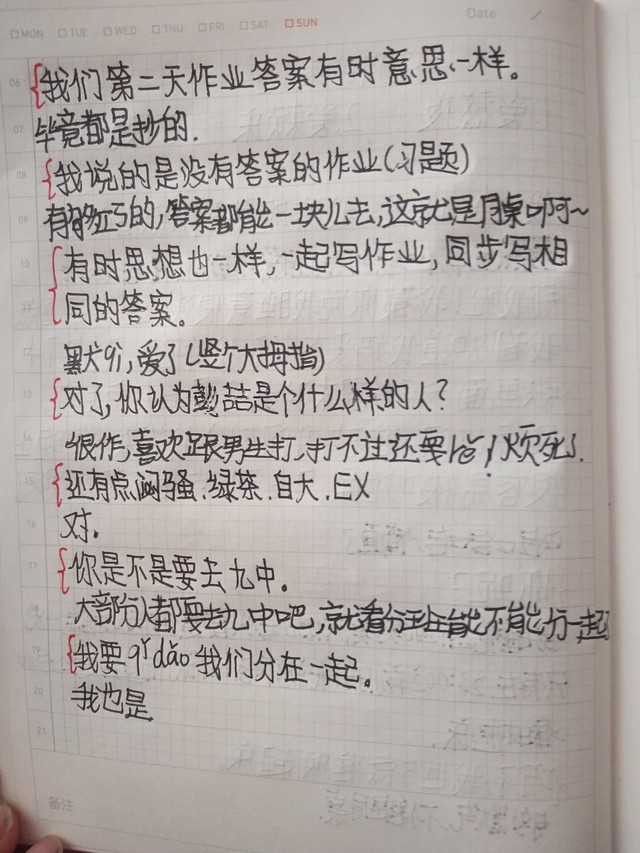 MON TUE WED THU FRI SAT SUN Date
06 {我们第二天作业答案有时意思一样。
07 毕竟都是抄的.
08 {我说的是没有答案的作业(习题)
09 的,答案都能一块儿去,这就是同桌啊~
10 {有时思想也一样,一起写作业,同步写相
11 同的答案。
12 默契qì,爱了(竖个大拇指)
13 {对了,你认为彭喆是个什么样的人?
14 很作,喜欢跟男生打,打不过还要!烦死了.
15 {还有点闷骚.绿茶.自大.EX
16 对.
17 {你是不是要去九中。
18 大部分人都要去九中吧,就看分班能不能分一起
19 {我要qǐ dǎo我们分在一起。
20 我也是
21
备注